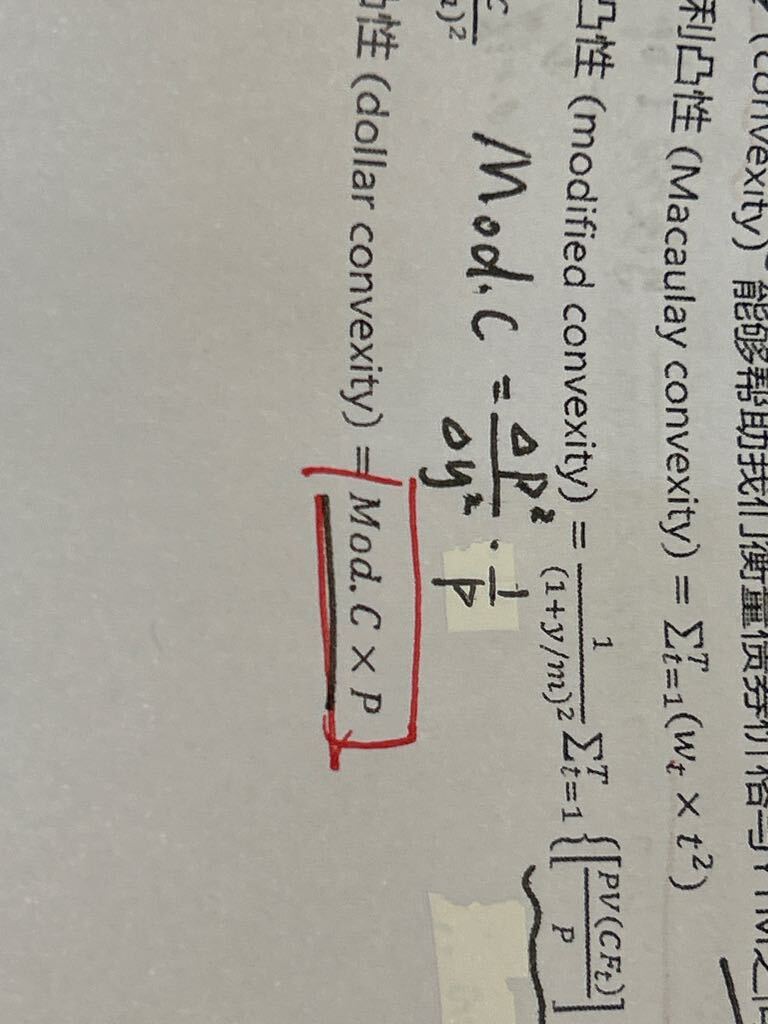 (convexity) 能够帮助我们衡量债券价格与YTM之间
利凸性 (Macaulay convexity) = ∑ᵀₜ₌₁(wₜ × t²)
凸性 (modified convexity) = 1/(1+y/m)² ∑ᵀₜ₌₁{[PV(CFₜ)/P]
Mod. C = ΔP²/Δy² · 1/P
凸性 (dollar convexity) = Mod. C × P